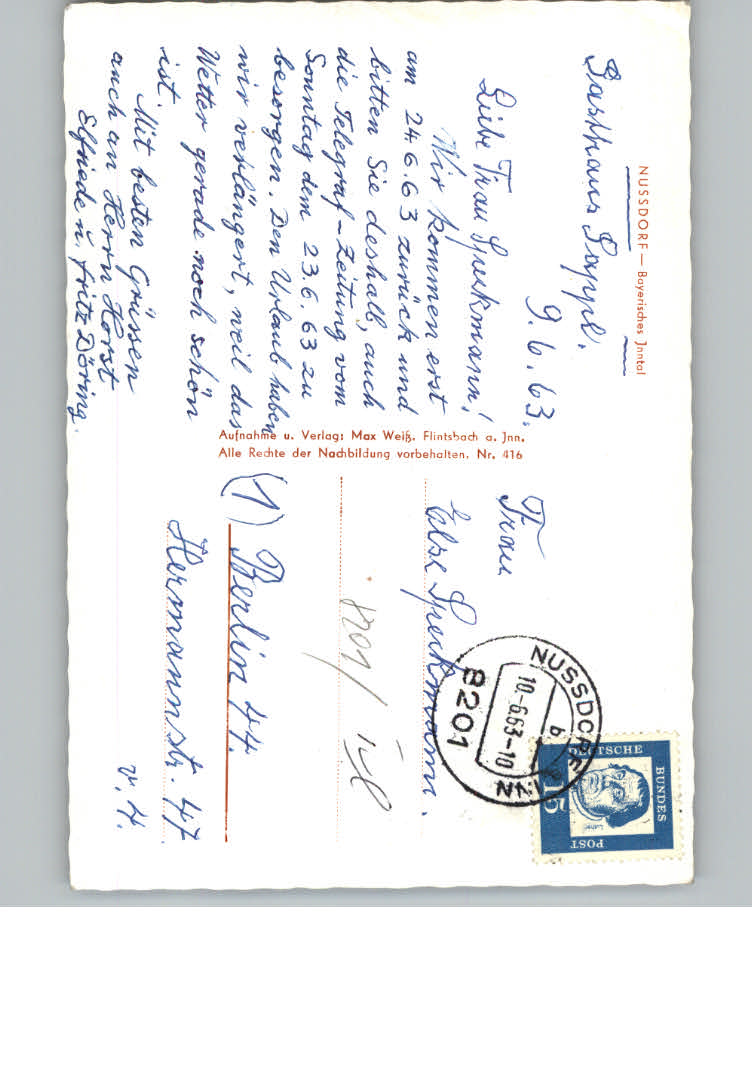 NUSSDORF — Bayerisches Jnntal
Gasthaus Pappl.
9.6.63.
Liebe Frau Speckmann!
Wir kommen erst
am 24.6.63 zurück und
bitten Sie deshalb, auch
die Telegraf-Zeitung vom
Sonntag dem 23.6.63 zu
besorgen. Den Urlaub haben
wir verlängert, weil das
Wetter gerade noch schön
ist.
Mit besten Grüssen
auch an Herrn Horst
Elfriede u. Fritz Döring.
Aufnahme u. Verlag: Max Weiß, Flintsbach a. Jnn.
Alle Rechte der Nachbildung vorbehalten. Nr. 416
NUSSDORF
b
10.-6.63-10
8201
INN
DEUTSCHE
BUNDES
POST
15
Luther
Frau
Else Speckmann.
8201
(1) Berlin 44.
Hermannstr. 47
v. H.